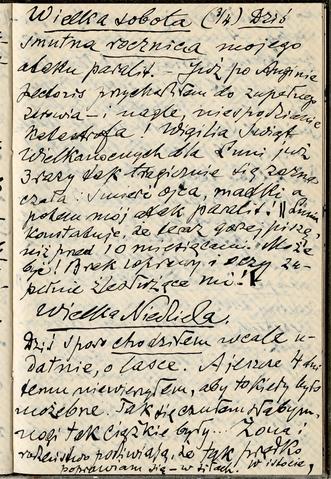 Wielka Sobota (3/4) Dziś
smutna rocznica mojego
ataku paraliż. – Już po Anginie
Pectoris przychodziłem do zupełnego
zdrowia – i nagle, niespodzianie
katastrofa! Wigilia Świąt
Wielkanocnych dla Luni już
3 razy tak tragicznie się zazna-
czała: śmierć ojca, matki a
potem mój atak paraliż.! || Lunia
konstatuje, że teraz gorzej piszę,
niż przed 10 miesiącami. Może
być! Brak wprawy i oczy zu-
pełnie złe służące mi!
Wielka Niedziela.
Dziś sporo chodziłem wcale u-
datnie, o lasce. A jeszcze 4 dni
temu niewierzyłem, aby to kiedy było
możebne. Tak się czułem słabym,
nogi tak ciężkie były... Żona i
rodzeństwo podziwiają, że tak prędko
poprawiam się – w siłach! W istocie,